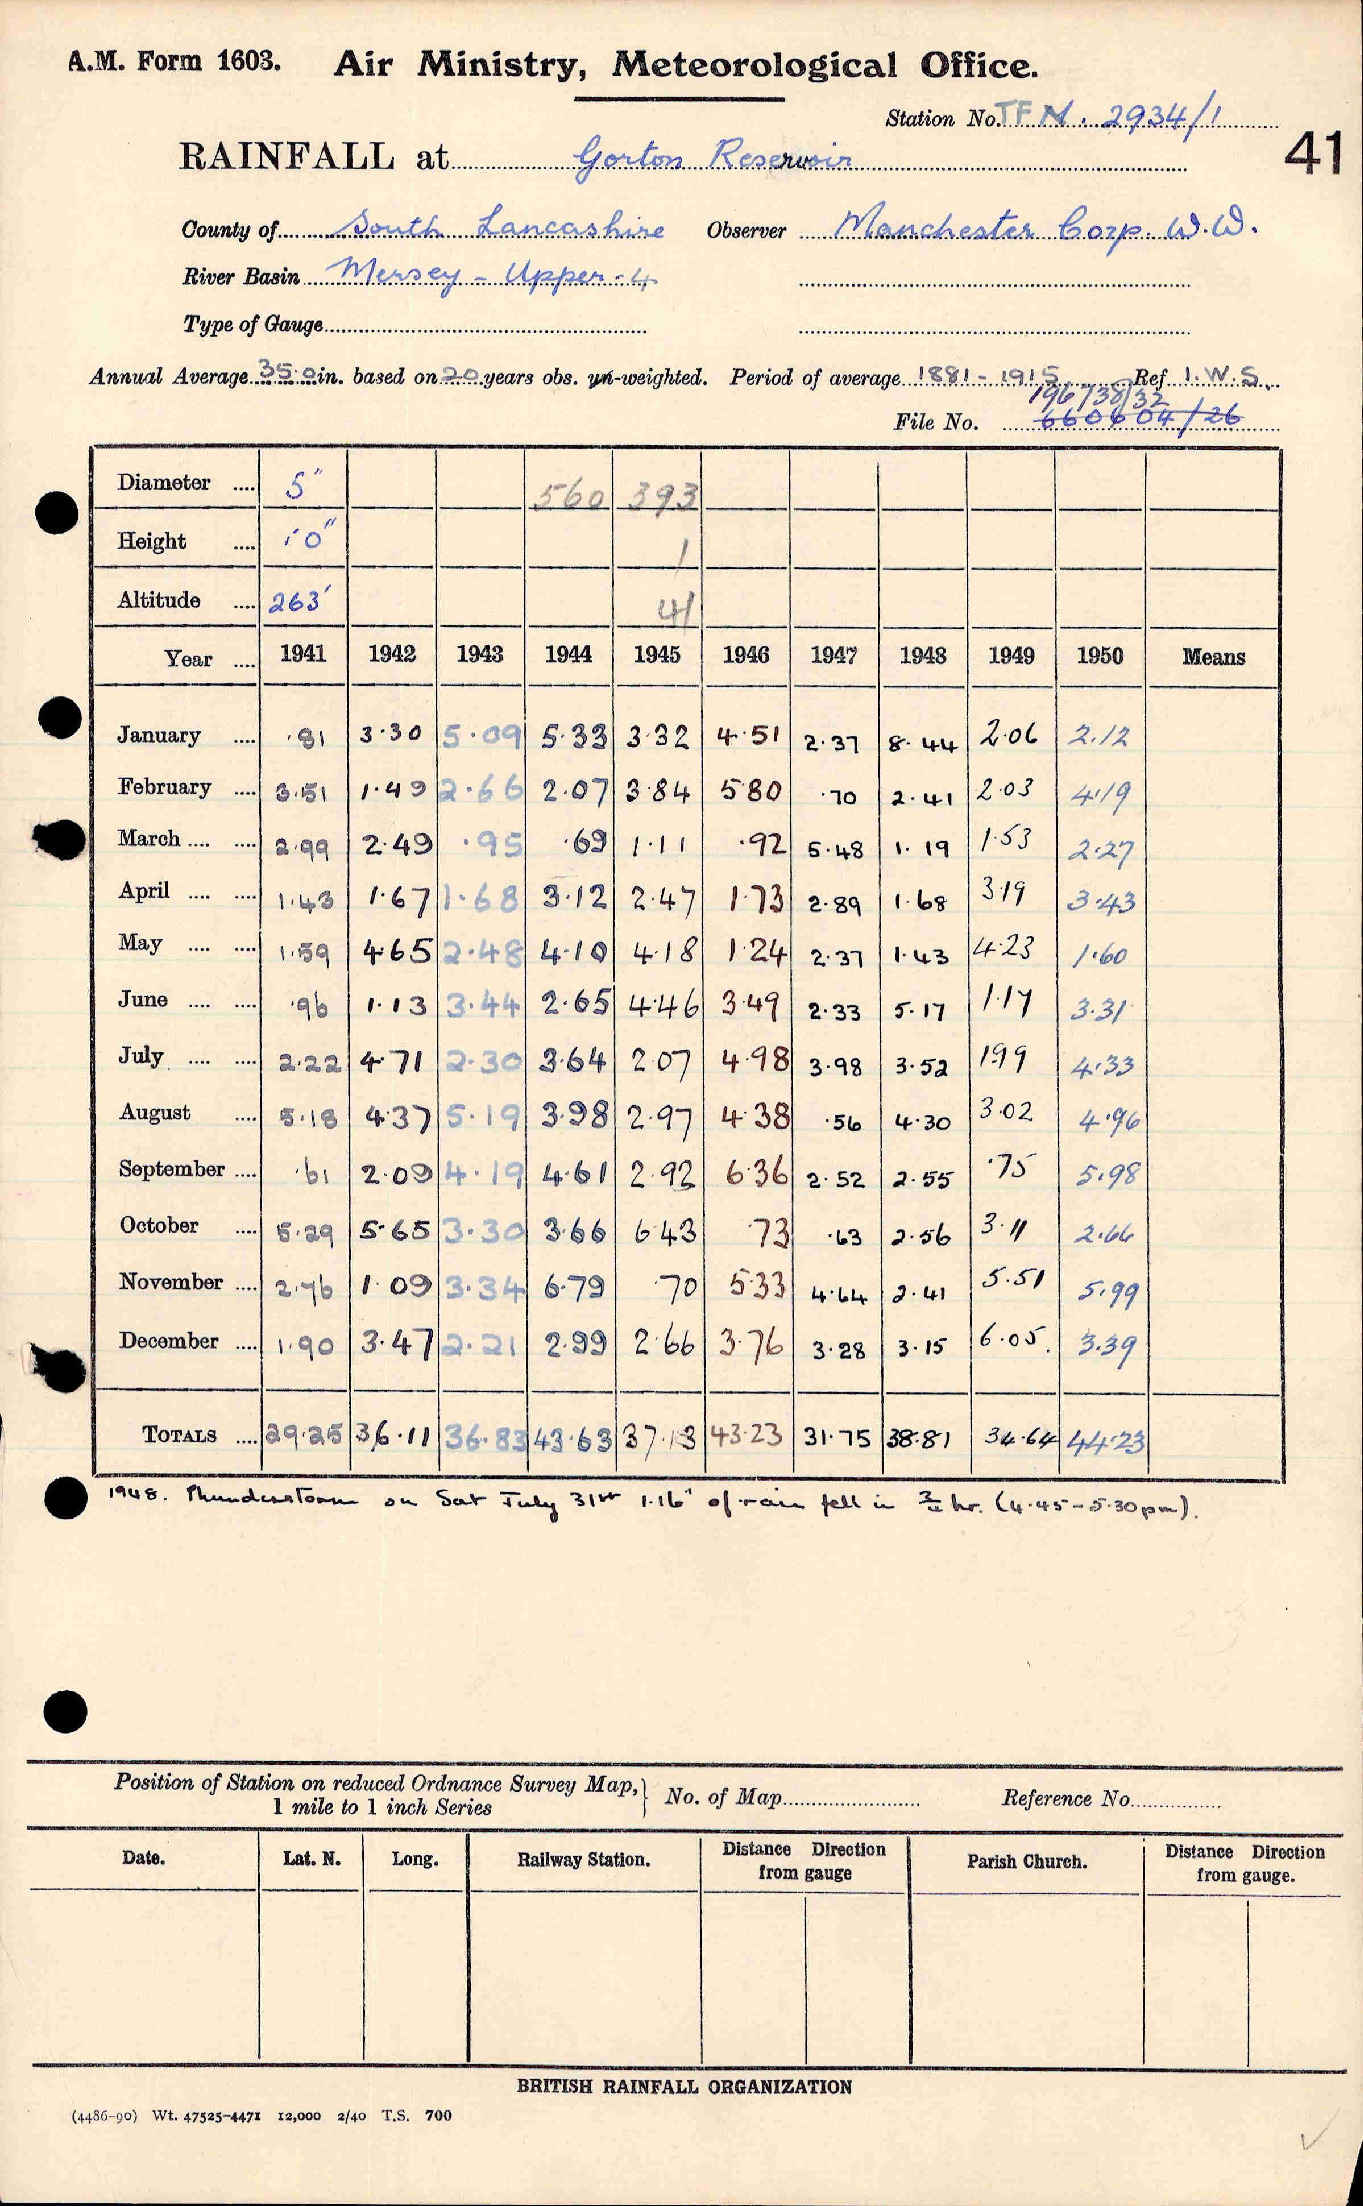 A.M. Form 1603. Air Ministry, Meteorological Office.
Station No. TFN. 2934/1
41
RAINFALL at Gorton Reservoir
County of South Lancashire Observer Manchester Corp. W.W.
River Basin Mersey - Upper - 4
Type of Gauge
Annual Average 35.0 in. based on 20 years obs. un-weighted. Period of average 1881 - 1915 Ref I.W.S.
196738/32
File No. 660604/26
Diameter .... 5" 560 393
Height .... 10" 1
Altitude .... 263' 41
Year .... 1941 1942 1943 1944 1945 1946 1947 1948 1949 1950 Means
January .... ·81 3·30 5·09 5·33 3·32 4·51 2·37 8·44 2·06 2·12
February .... 3·51 1·49 2·66 2·07 3·84 5·80 ·70 2·41 2·03 4·19
March .... .... 2·99 2·49 ·95 ·69 1·11 ·92 5·48 1·19 1·53 2·27
April .... .... 1·43 1·67 1·68 3·12 2·47 1·73 2·89 1·68 3·19 3·43
May .... .... 1·59 4·65 2·48 4·10 4·18 1·24 2·37 1·43 4·23 1·60
June .... .... ·96 1·13 3·44 2·65 4·46 3·49 2·33 5·17 1·17 3·31
July .... .... 2·22 4·71 2·30 3·64 2·07 4·98 3·98 3·52 1·99 4·33
August .... 5·18 4·37 5·19 3·98 2·97 4·38 ·56 4·30 3·02 4·96
September .... ·61 2·09 4·19 4·61 2·92 6·36 2·52 2·55 ·75 5·98
October .... 5·29 5·65 3·30 3·66 6·43 ·73 ·63 2·56 3·11 2·66
November .... 2·76 1·09 3·34 6·79 ·70 5·33 4·64 2·41 5·51 5·99
December .... 1·90 3·47 2·21 2·99 2·66 3·76 3·28 3·15 6·05. 3·39
TOTALS .... 29·25 36·11 36·83 43·63 37·13 43·23 31·75 38·81 34·64 44·23
1948. Thunderstorm on Sat July 31st 1·16" of rain fell in ¾ hr. (4·45 - 5·30pm).
Position of Station on reduced Ordnance Survey Map, 1 mile to 1 inch Series } No. of Map Reference No.
Date. Lat. N. Long. Railway Station. Distance Direction from gauge Parish Church. Distance Direction from gauge.
BRITISH RAINFALL ORGANIZATION
(4486-90) Wt. 47525-4471 12,000 2/40 T.S. 700